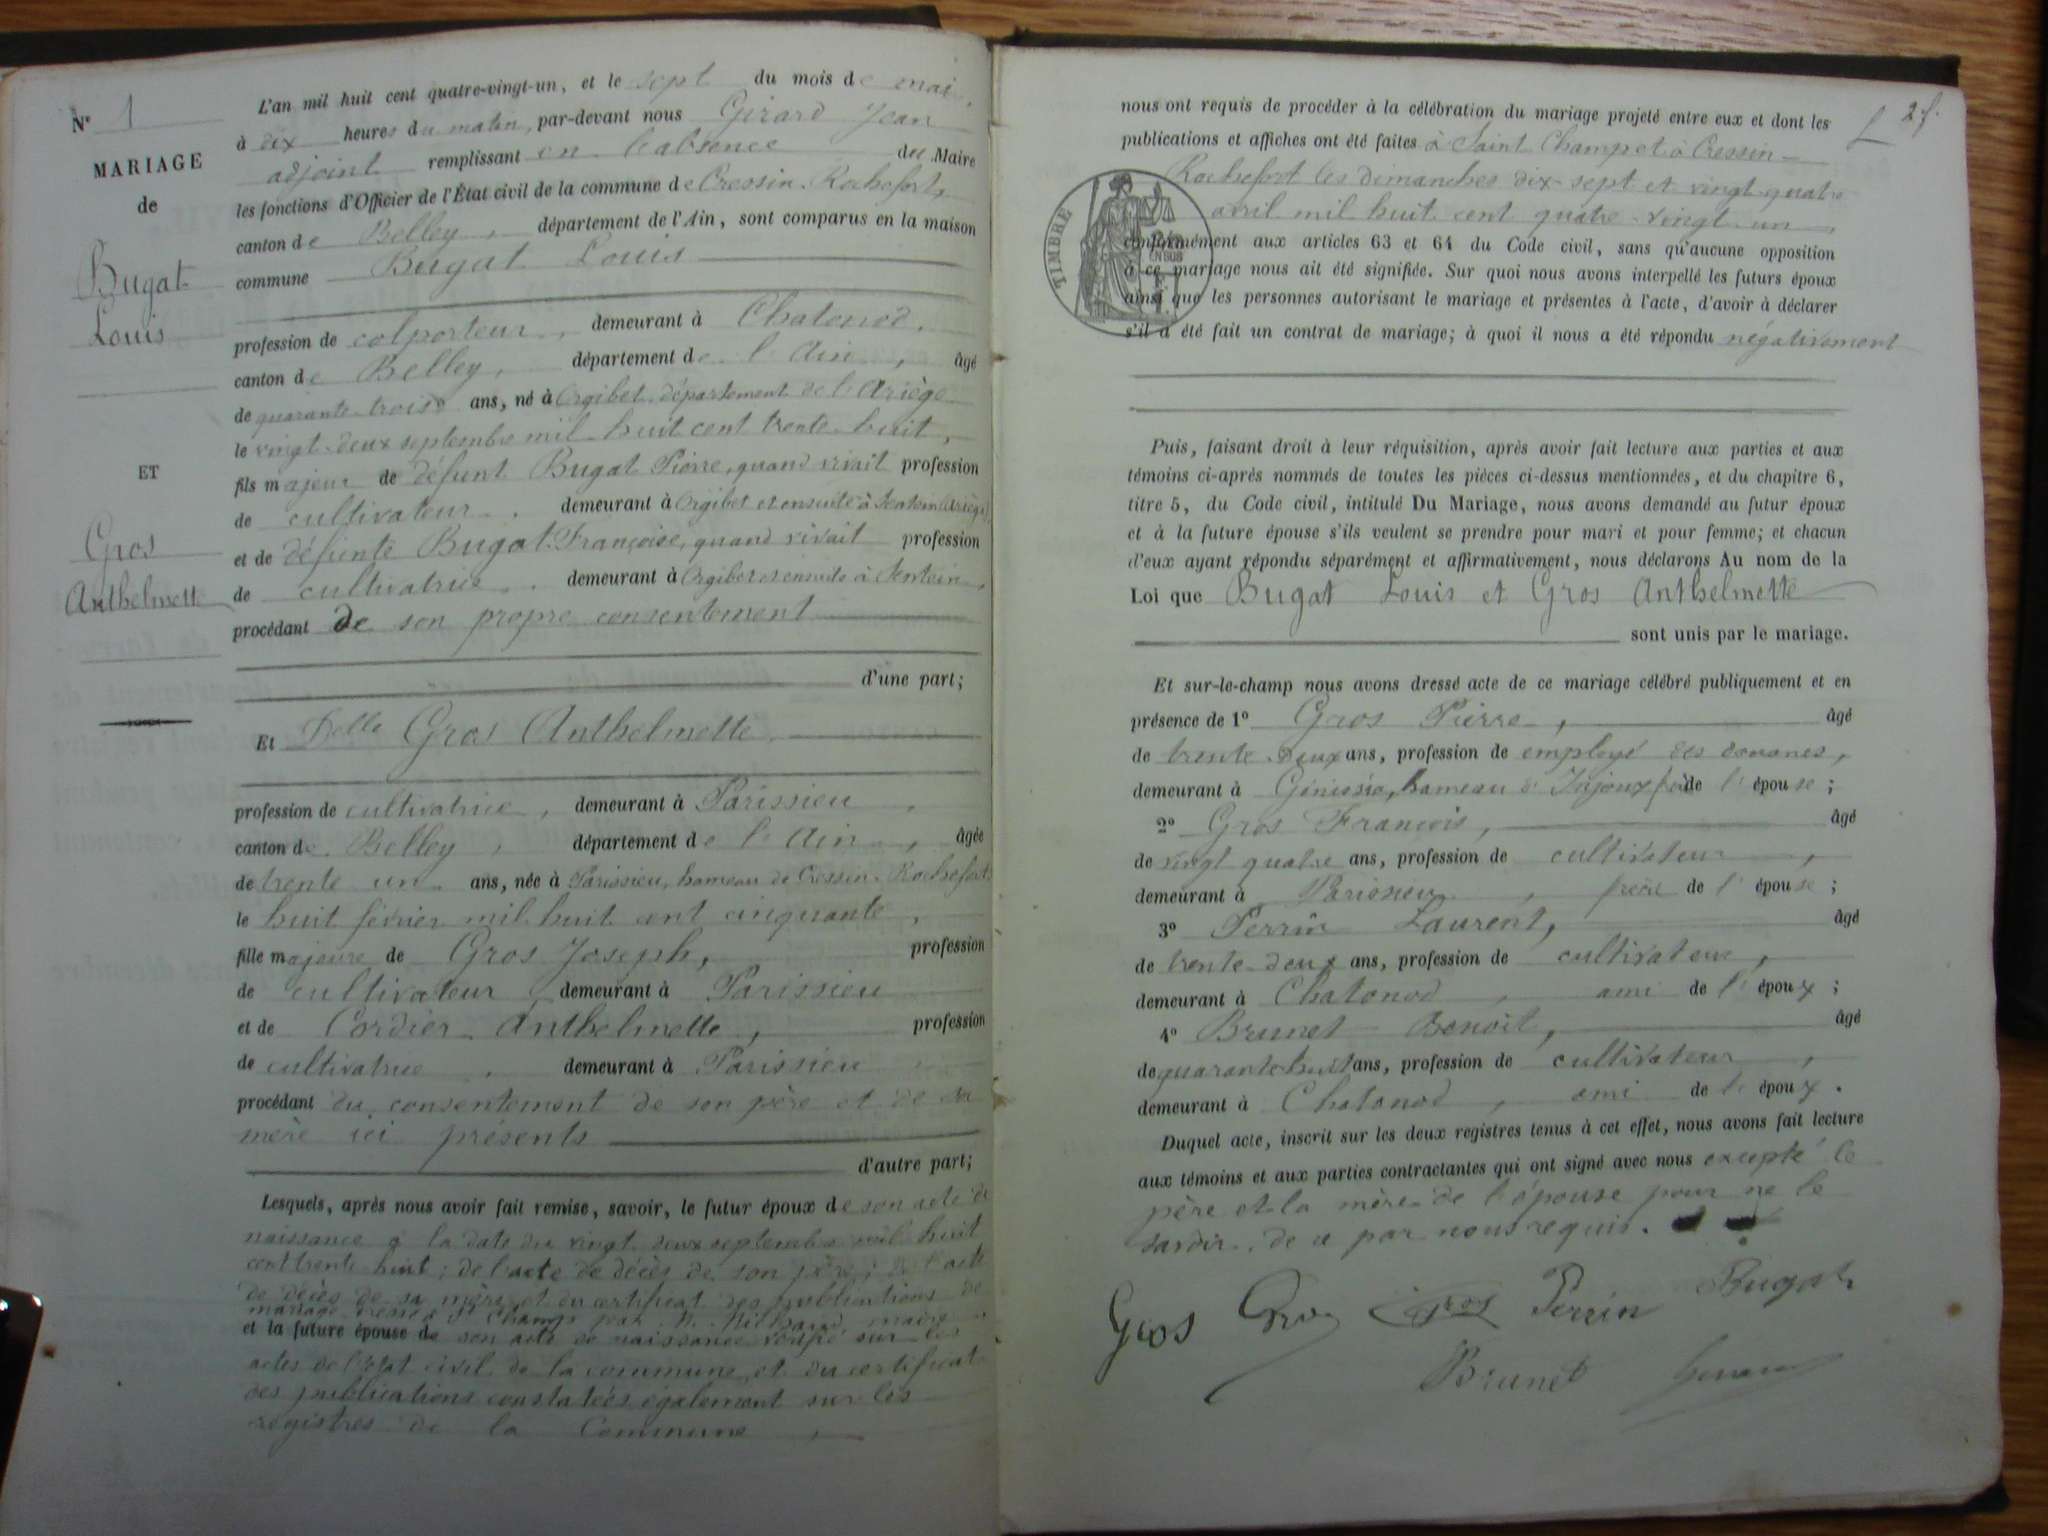 Nº 1
MARIAGE
de
Bugat
Louis
ET
Gros
Anthelmette
L'an mil huit cent quatre-vingt-un, et le sept du mois de mai,
à dix heures du matin, par-devant nous Girard Jean
adjoint remplissant en l'absence du Maire
les fonctions d'Officier de l'État civil de la commune de Cressin-Rochefort,
canton de Belley, département de l'Ain, sont comparus en la maison
commune Bugat Louis
profession de colporteur, demeurant à Chatonod,
canton de Belley, département de l'Ain, âgé
de quarante-trois ans, né à Orgibet département de l'Ariège
le vingt-deux septembre mil huit cent trente-huit,
fils majeur de défunt Bugat Pierre, quand vivait profession
de cultivateur. demeurant à Orgibet et ensuite à Sentein (Ariège)
et de défunte Bugat Françoise, quand vivait profession
de cultivatrice. demeurant à Orgibet et ensuite à Sentein,
procédant de son propre consentement
d'une part;
Et Delle Gros Anthelmette
profession de cultivatrice, demeurant à Parissieu,
canton de Belley, département de l'Ain, âgée
de trente un ans, née à Parissieu, hameau de Cressin-Rochefort
le huit février mil huit cent cinquante,
fille majeure de Gros Joseph, profession
de cultivateur demeurant à Parissieu
et de Cordier Anthelmette, profession
de cultivatrice. demeurant à Parissieu
procédant du consentement de son père et de sa
mère ici présents
d'autre part;
Lesquels, après nous avoir fait remise, savoir, le futur époux de son acte de
naissance à la date du vingt deux septembre mil huit
cent trente huit; de l'acte de décès de son père; de l'acte
de décès de sa mère et du certificat des publications de
mariage dressé à St Champ par M. maire
et la future épouse de son acte de naissance relevé sur les
actes de l'état civil de la commune et du certificat
des publications constatées également sur les
registres de la Commune,
2 f.
nous ont requis de procéder à la célébration du mariage projeté entre eux et dont les
publications et affiches ont été faites à Saint Champ et à Cressin-
Rochefort les dimanches dix-sept et vingt-quatre
avril mil huit cent quatre-vingt-un,
TIMBRE
conformément aux articles 63 et 64 du Code civil, sans qu'aucune opposition
à ce mariage nous ait été signifiée. Sur quoi nous avons interpellé les futurs époux
ainsi que les personnes autorisant le mariage et présentes à l'acte, d'avoir à déclarer
s'il a été fait un contrat de mariage; à quoi il nous a été répondu négativement
Puis, faisant droit à leur réquisition, après avoir fait lecture aux parties et aux
témoins ci-après nommés de toutes les pièces ci-dessus mentionnées, et du chapitre 6,
titre 5, du Code civil, intitulé Du Mariage, nous avons demandé au futur époux
et à la future épouse s'ils veulent se prendre pour mari et pour femme; et chacun
d'eux ayant répondu séparément et affirmativement, nous déclarons Au nom de la
Loi que Bugat Louis et Gros Anthelmette
sont unis par le mariage.
Et sur-le-champ nous avons dressé acte de ce mariage célébré publiquement et en
présence de 1º Gros Pierre, âgé
de trente-deux ans, profession de employé des douanes,
demeurant à Génissia, hameau d'Injoux frère de l'épouse;
2º Gros François, âgé
de vingt quatre ans, profession de cultivateur,
demeurant à Parissieu, frère de l'épouse;
3º Perrin Laurent, âgé
de trente-deux ans, profession de cultivateur,
demeurant à Chatonod, ami de l'époux;
4º Brunet Benoit, âgé
de quarante-huit ans, profession de cultivateur,
demeurant à Chatonod, ami de l'époux.
Duquel acte, inscrit sur les deux registres tenus à cet effet, nous avons fait lecture
aux témoins et aux parties contractantes qui ont signé avec nous excepté le
père et la mère de l'épouse pour ne le
savoir, de ce par nous requis.
Gros Gros Gros Perrin Bugat
Brunet Girard